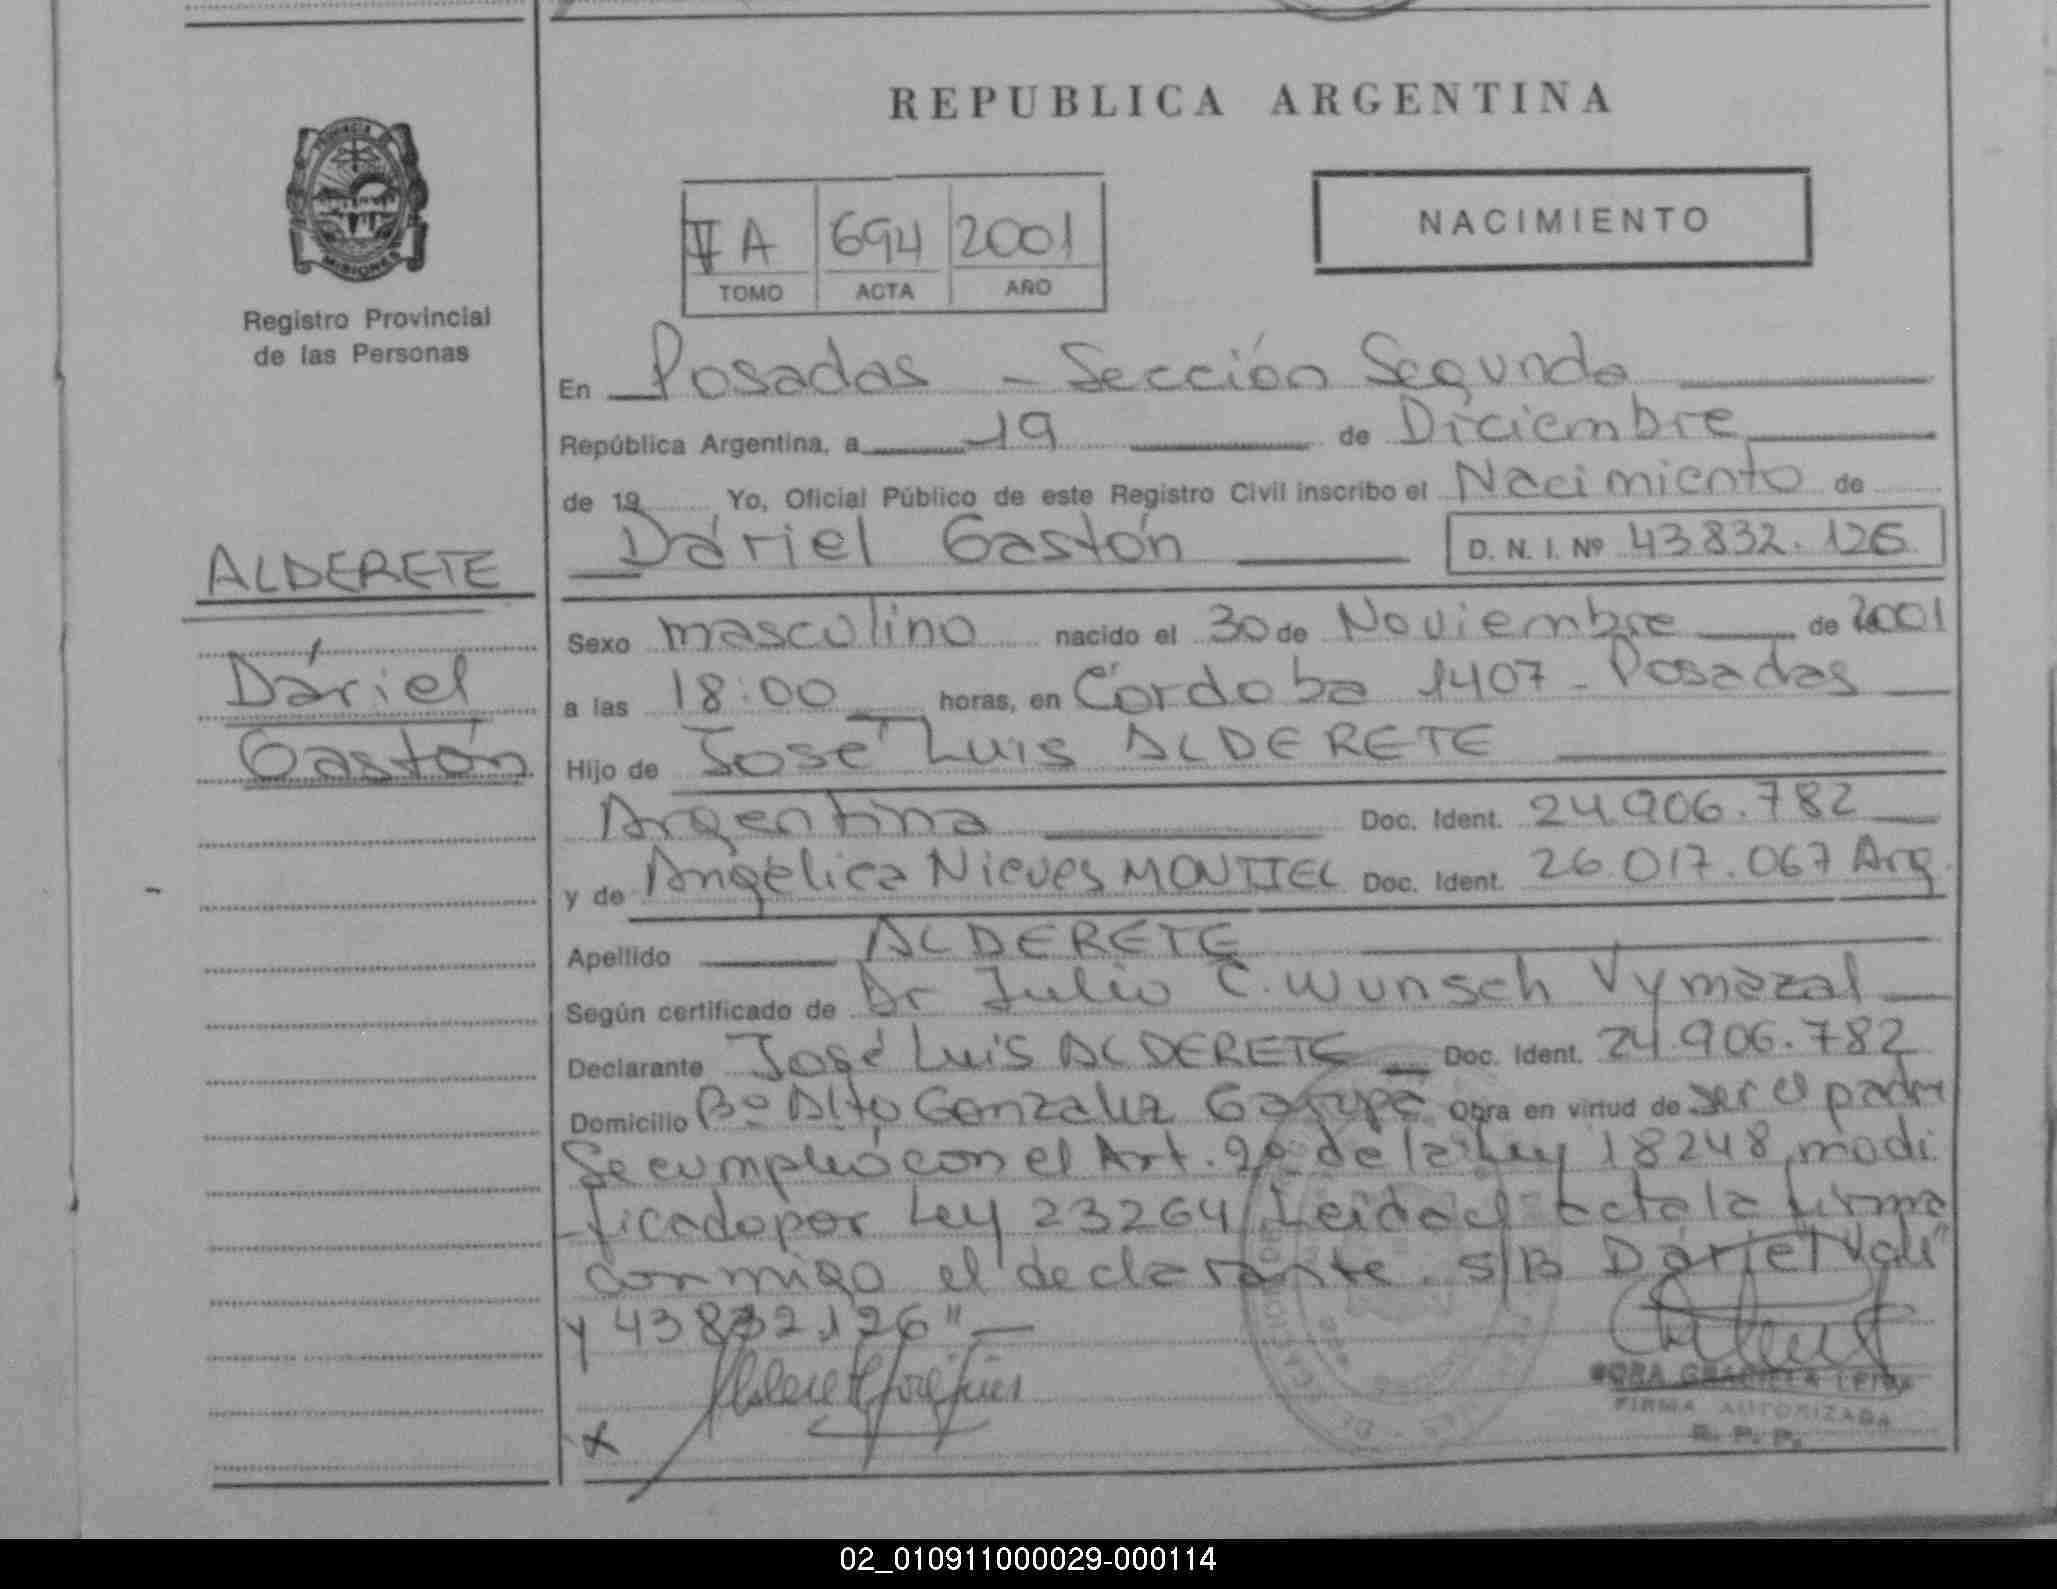 REPUBLICA ARGENTINA
NACIMIENTO
A 694 2001
TOMO ACTA AÑO
PROVINCIA
MISIONES
Registro Provincial
de las Personas
ALDERETE
Dáriel
Gastón
En Posadas - Sección Segunda
República Argentina, a 19 de Diciembre
de 19 Yo, Oficial Público de este Registro Civil inscribo el Nacimiento de
Dáriel Gastón D. N. I. Nº 43.832.126
Sexo masculino nacido el 30 de Noviembre de 2001
a las 18:00 horas, en Córdoba 1407 - Posadas
Hijo de José Luis ALDERETE
Argentina Doc. Ident. 24.906.782
y de Angélica Nieves MONTIEL Doc. Ident. 26.017.067 Arg.
Apellido ALDERETE
Según certificado de Dr Julio C. Wunsch Vymazal
Declarante José Luis ALDERETE Doc. Ident. 24.906.782
Domicilio Bº Alto Gonzalez Garupá Obra en virtud de ser el padre
Se cumplió con el Art. de la Ley 18248, modi
ficado por Ley 23264 Leida el acta la firma
conmigo el declarante. S/B Dáriel Vale
y 43832.126" -
x
GRACIELA LEIVA
FIRMA AUTORIZADA
R. P. P.
02_010911000029-000114